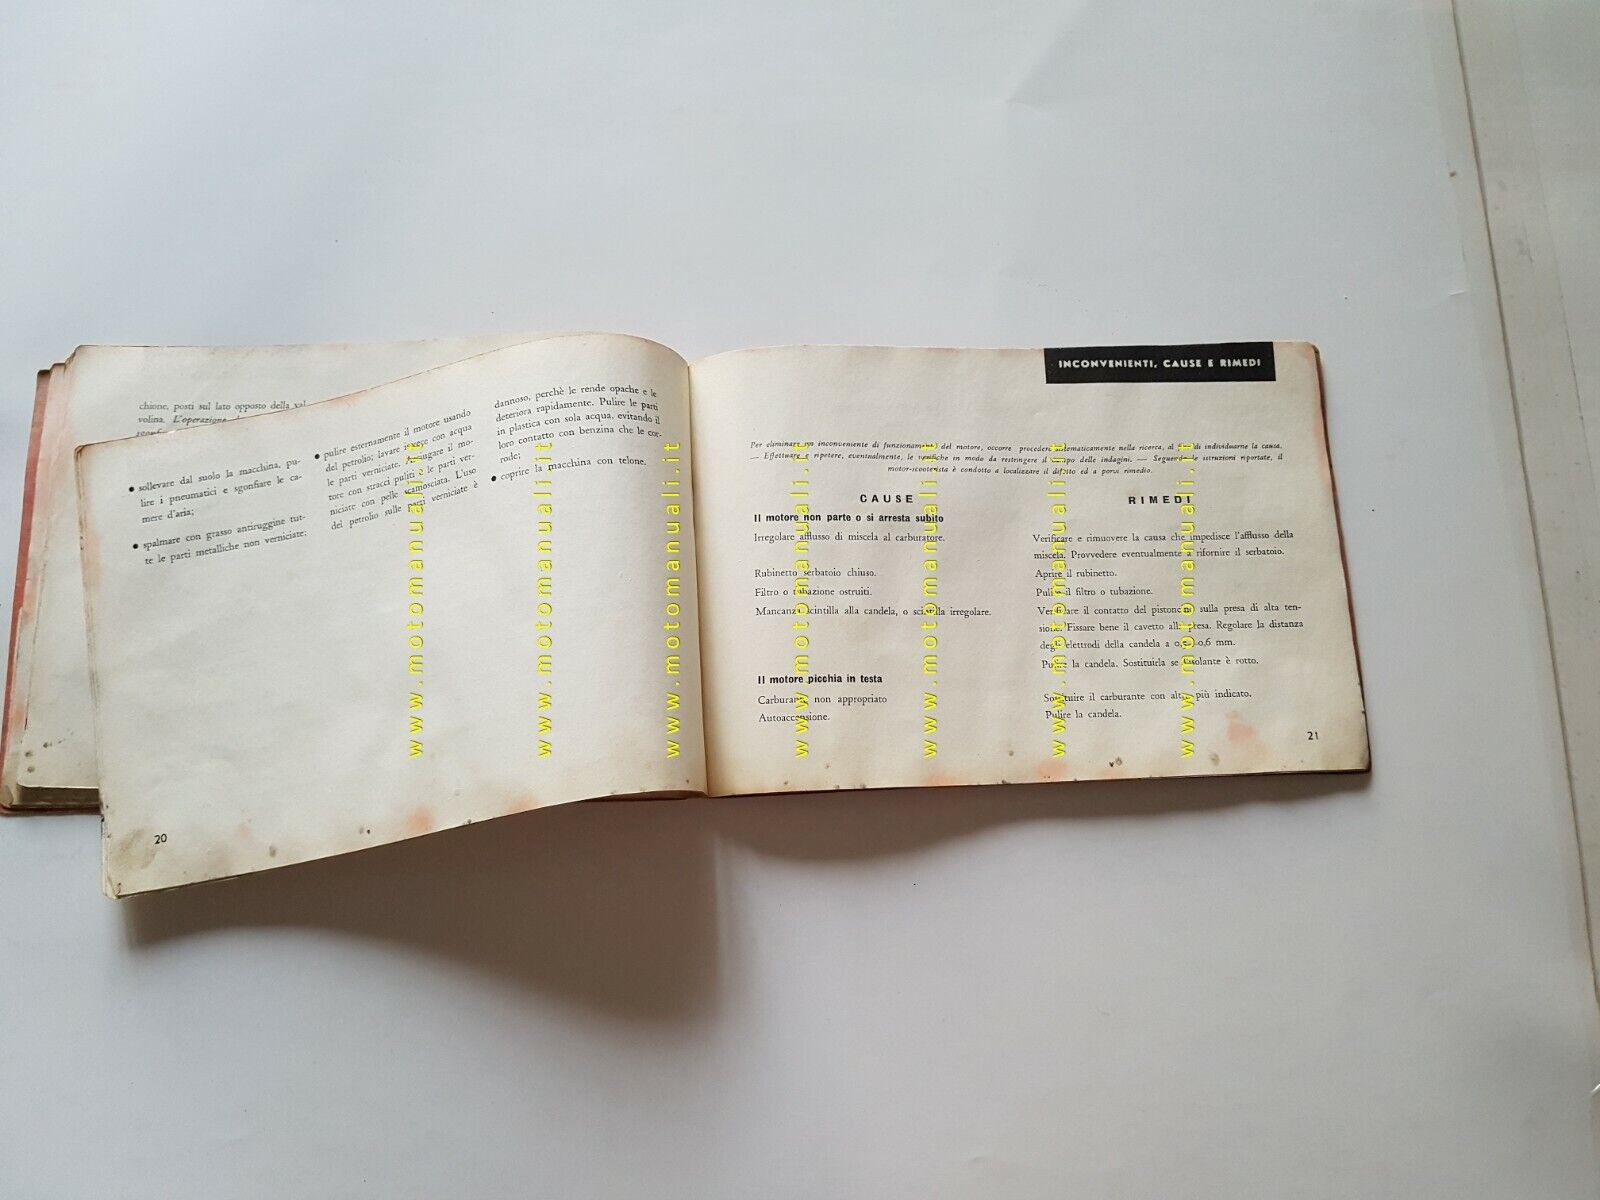 chione, posti sul lato opposto della val-
volina. L'operazione
sollevare dal suolo la macchina, pu-
lire i pneumatici e sgonfiare le ca-
mere d'aria;
spalmare con grasso antiruggine tut-
te le parti metalliche non verniciate;
pulire esternamente il motore usando
del petrolio; lavare invece con acqua
le parti verniciate. Asciugare il mo-
tore con stracci puliti e le parti ver-
niciate con pelle scamosciata. L'uso
del petrolio sulle parti verniciate è
dannoso, perchè le rende opache e le
deteriora rapidamente. Pulire le parti
in plastica con sola acqua, evitando il
loro contatto con benzina che le cor-
rode;
coprire la macchina con telone.
20
INCONVENIENTI, CAUSE E RIMEDI
Per eliminare un inconveniente di funzionamento del motore, occorre procedere sistematicamente nella ricerca, al fine di individuarne la causa.
— Effettuare e ripetere, eventualmente, le verifiche in modo da restringere il campo delle indagini. — Seguendo le istruzioni riportate, il
motor-scooterista è condotto a localizzare il difetto ed a porvi rimedio.
CAUSE
RIMEDI
Il motore non parte o si arresta subito
Irregolare afflusso di miscela al carburatore.
Verificare e rimuovere la causa che impedisce l'afflusso della
miscela. Provvedere eventualmente a rifornire il serbatoio.
Rubinetto serbatoio chiuso.
Aprire il rubinetto.
Filtro o tubazione ostruiti.
Pulire il filtro o tubazione.
Mancanza scintilla alla candela, o scintilla irregolare.
Verificare il contatto del pistoncino sulla presa di alta ten-
sione. Fissare bene il cavetto alla presa. Regolare la distanza
degli elettrodi della candela a 0,6 mm.
Pulire la candela. Sostituirla se l'isolante è rotto.
Il motore picchia in testa
Carburante non appropriato
Sostituire il carburante con altro più indicato.
Autoaccensione.
Pulire la candela.
21
www.motomanuali.it
www.motomanuali.it
www.motomanuali.it
www.motomanuali.it
www.motomanuali.it
www.motomanuali.it
www.motomanuali.it